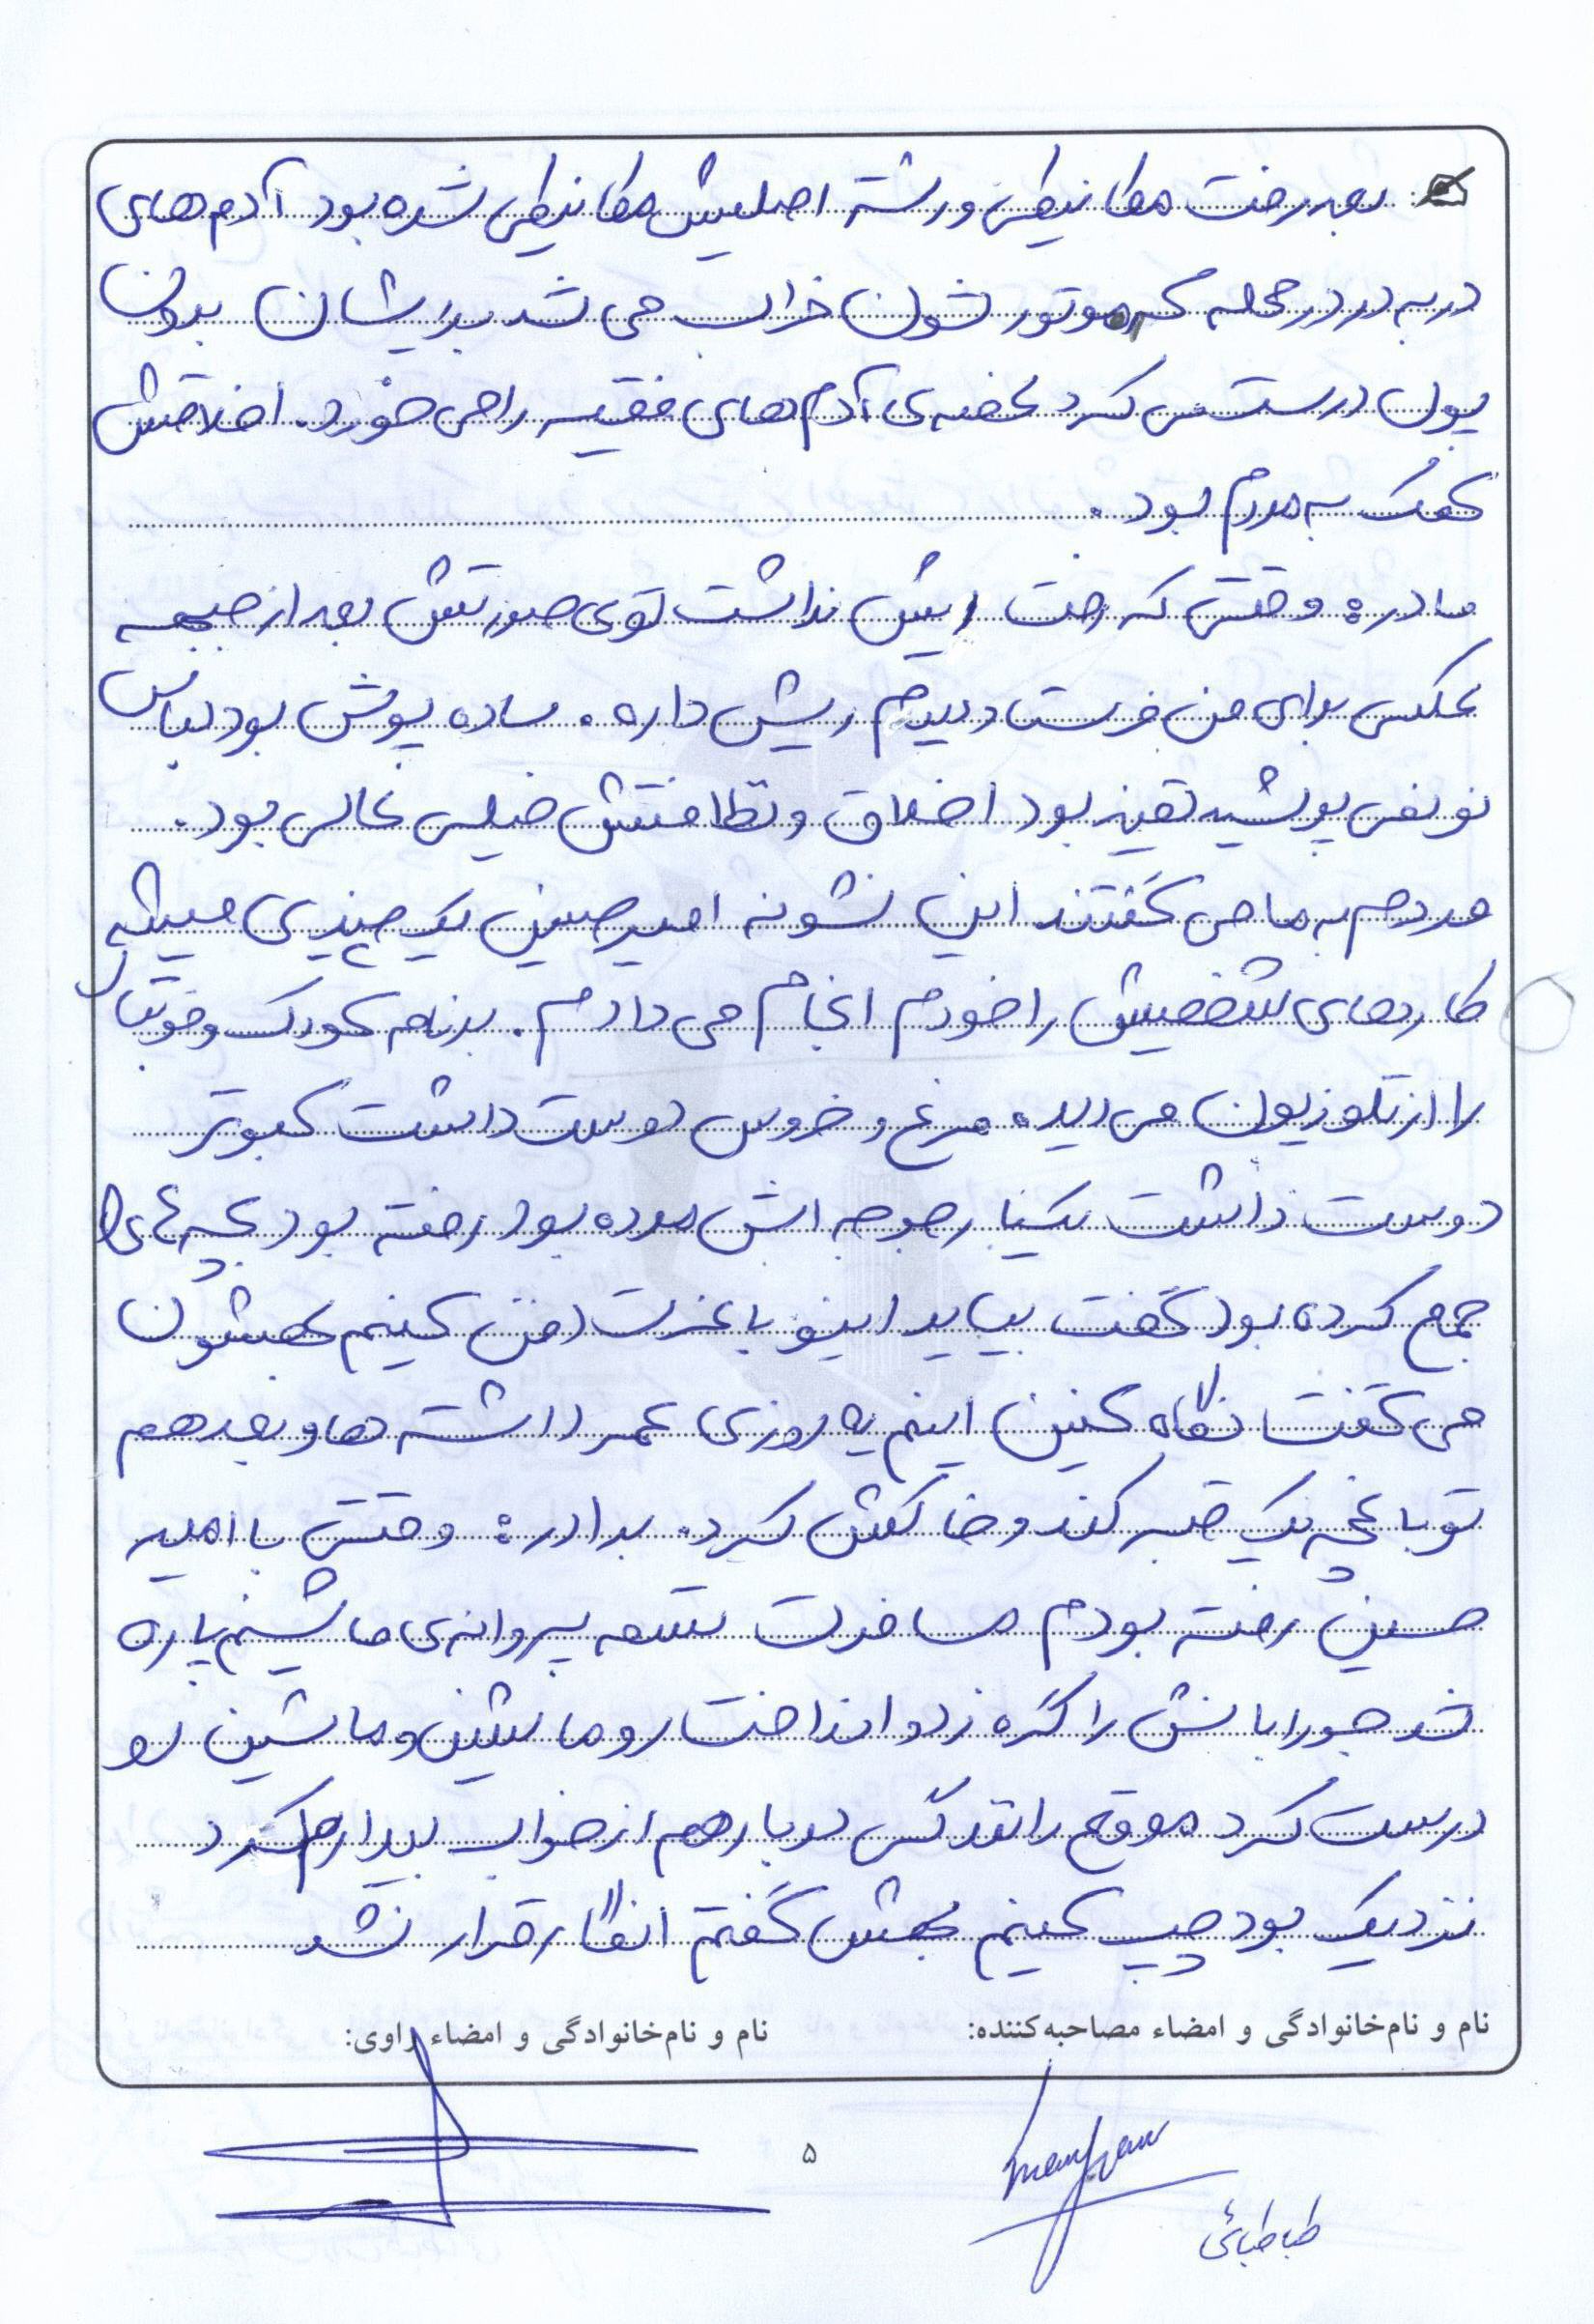 بعد رفت مکانیکی و رشته اصلیش مکانیکی شده بود آدم های
در به در در محله که موتورشون خراب می شد برایشان بدون
پول درست می کرد غصه ی آدم های فقیر را می خورد. اخلاقش
کمک به مردم بود.
مادر: وقتی که رفت ریش نداشت توی صورتش بعد از جبهه
عکس برای من فرستاد دیدم ریش داره. ساده پوش بود لباس
نو نمی پوشید تمیز بود اخلاق و نظافتش خیلی عالی بود.
مردم به ما می گفتند این نشونه امیرحسین یک چیزی میشه
کارهای شخصیش را خودم انجام می دادم. برنامه کودک و فوتبال
را از تلوزیون می دید. مرغ و خروس دوست داشت کبوتر
دوست داشت یکبار جوجه اش مرده بود رفته بود بچه ها را
جمع کرده بود گفت بیایید اینو با عزت دفن کنیم بهشون
می گفت نگاه کنین اینم یه روزی عمر داشته ها و بعد هم
تو باغچه یک قبر کند و خاکش کرد. برادر: وقتی با امیر
حسین رفته بودم مسافرت تسمه پروانه ی ماشینم پاره
شد جوراباش را گره زد و انداخت رو ماشین و ماشین رو
درست کرد موقع رانندگی دوبار هم از خواب بیدارم کرد
نزدیک بود چپ کنیم بهش گفتم انگار قرار نشد
نام و نام‌خانوادگی و امضاء مصاحبه‌کننده:
نام و نام‌خانوادگی و امضاء راوی:
۵
طباطبائی